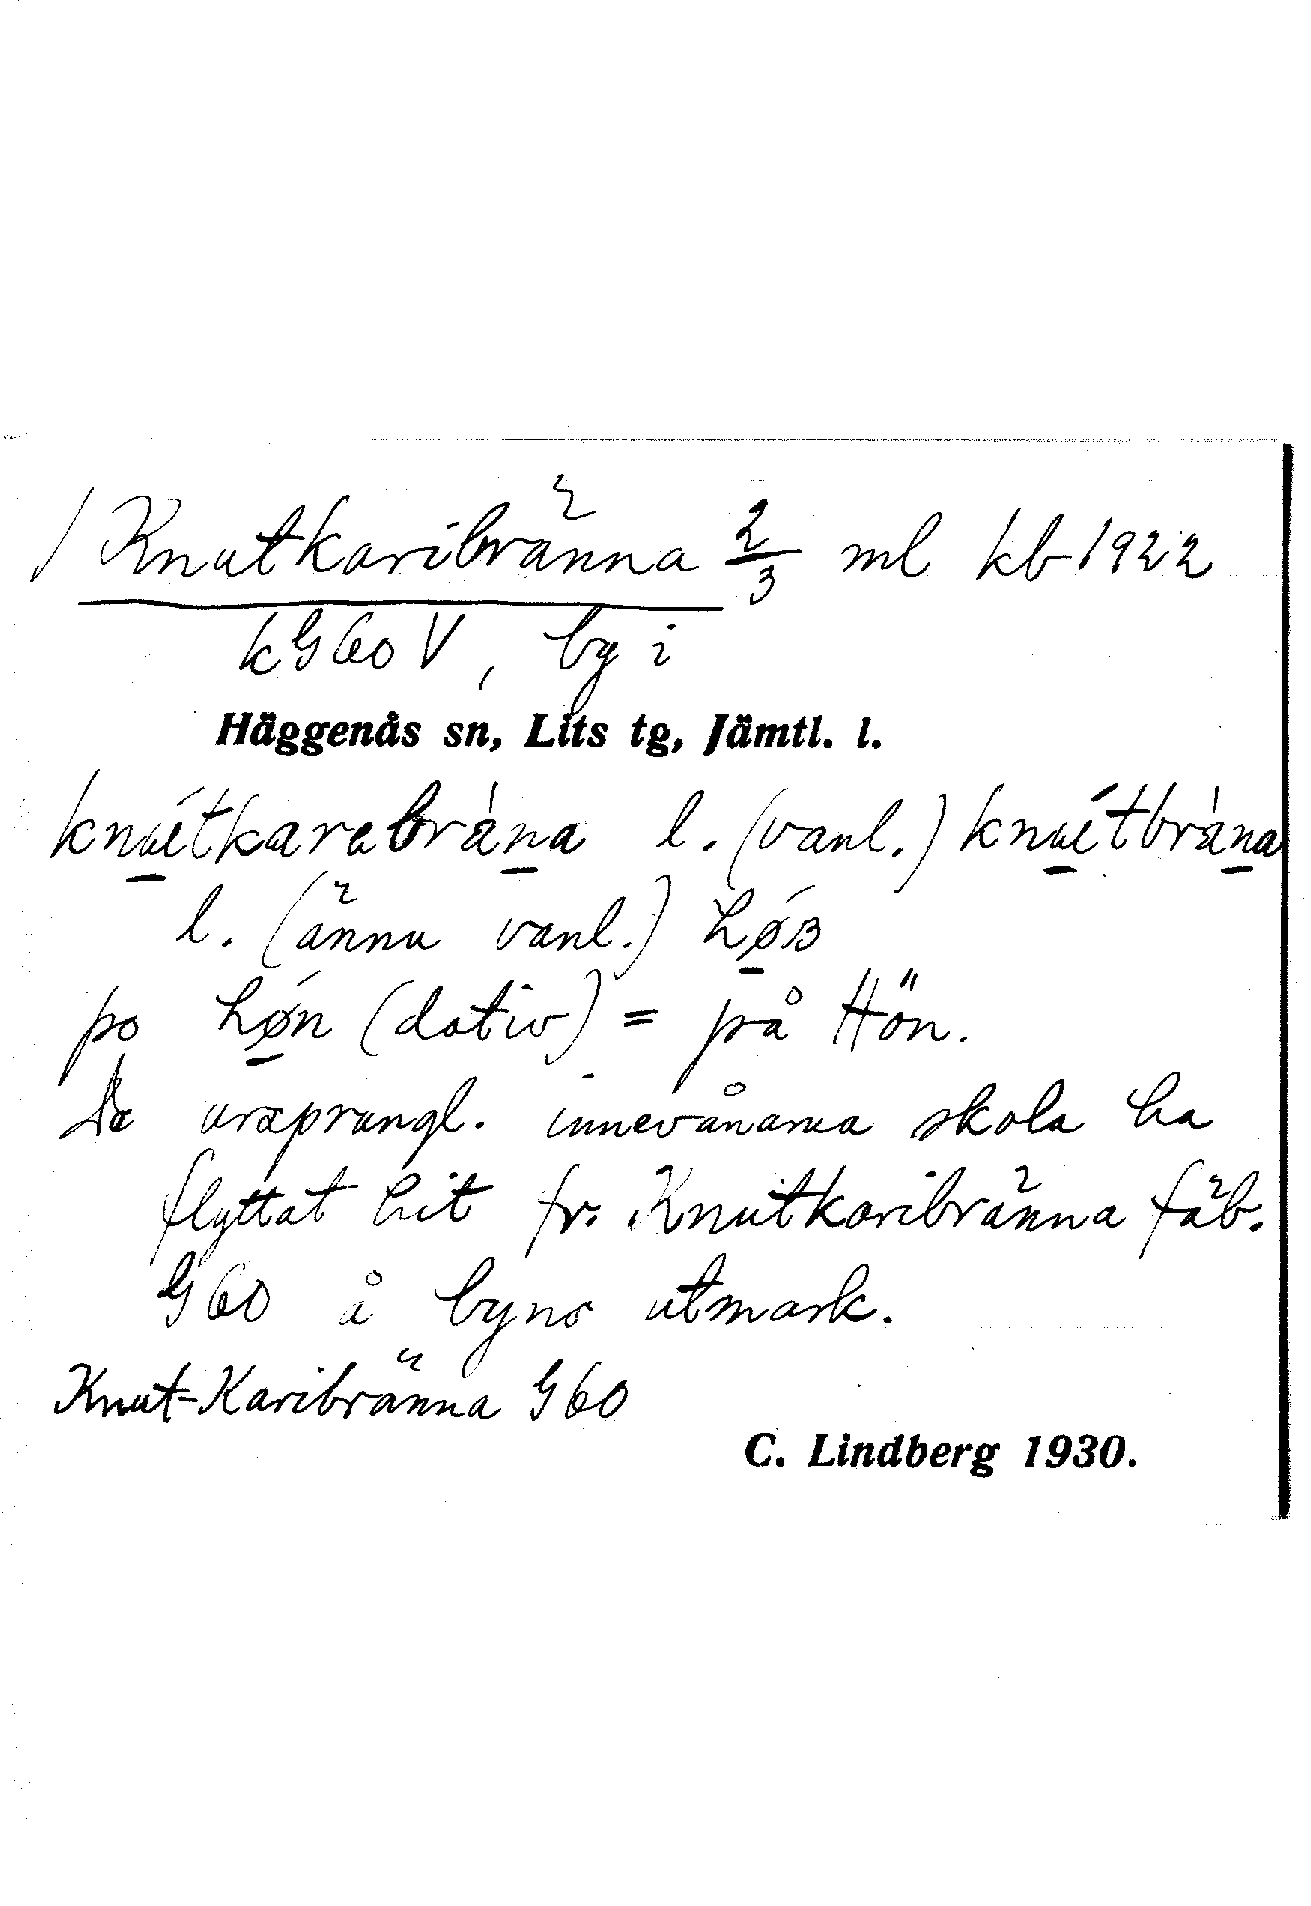 / Knutkaribränna 2/3 ml kb 1922
kG60V, by i
Häggenås sn, Lits tg, Jämtl. l.
knútkarebràna l. (vanl.) knútbràna
l. (ännu vanl.) hǿʙ
po hǿn (dativ) = på Hön.
De ursprungl. innevånarna skola ha
flyttat hit fr. Knutkaribränna fäb.
G60 å byns utmark.
Knut-Karibränna G60
C. Lindberg 1930.